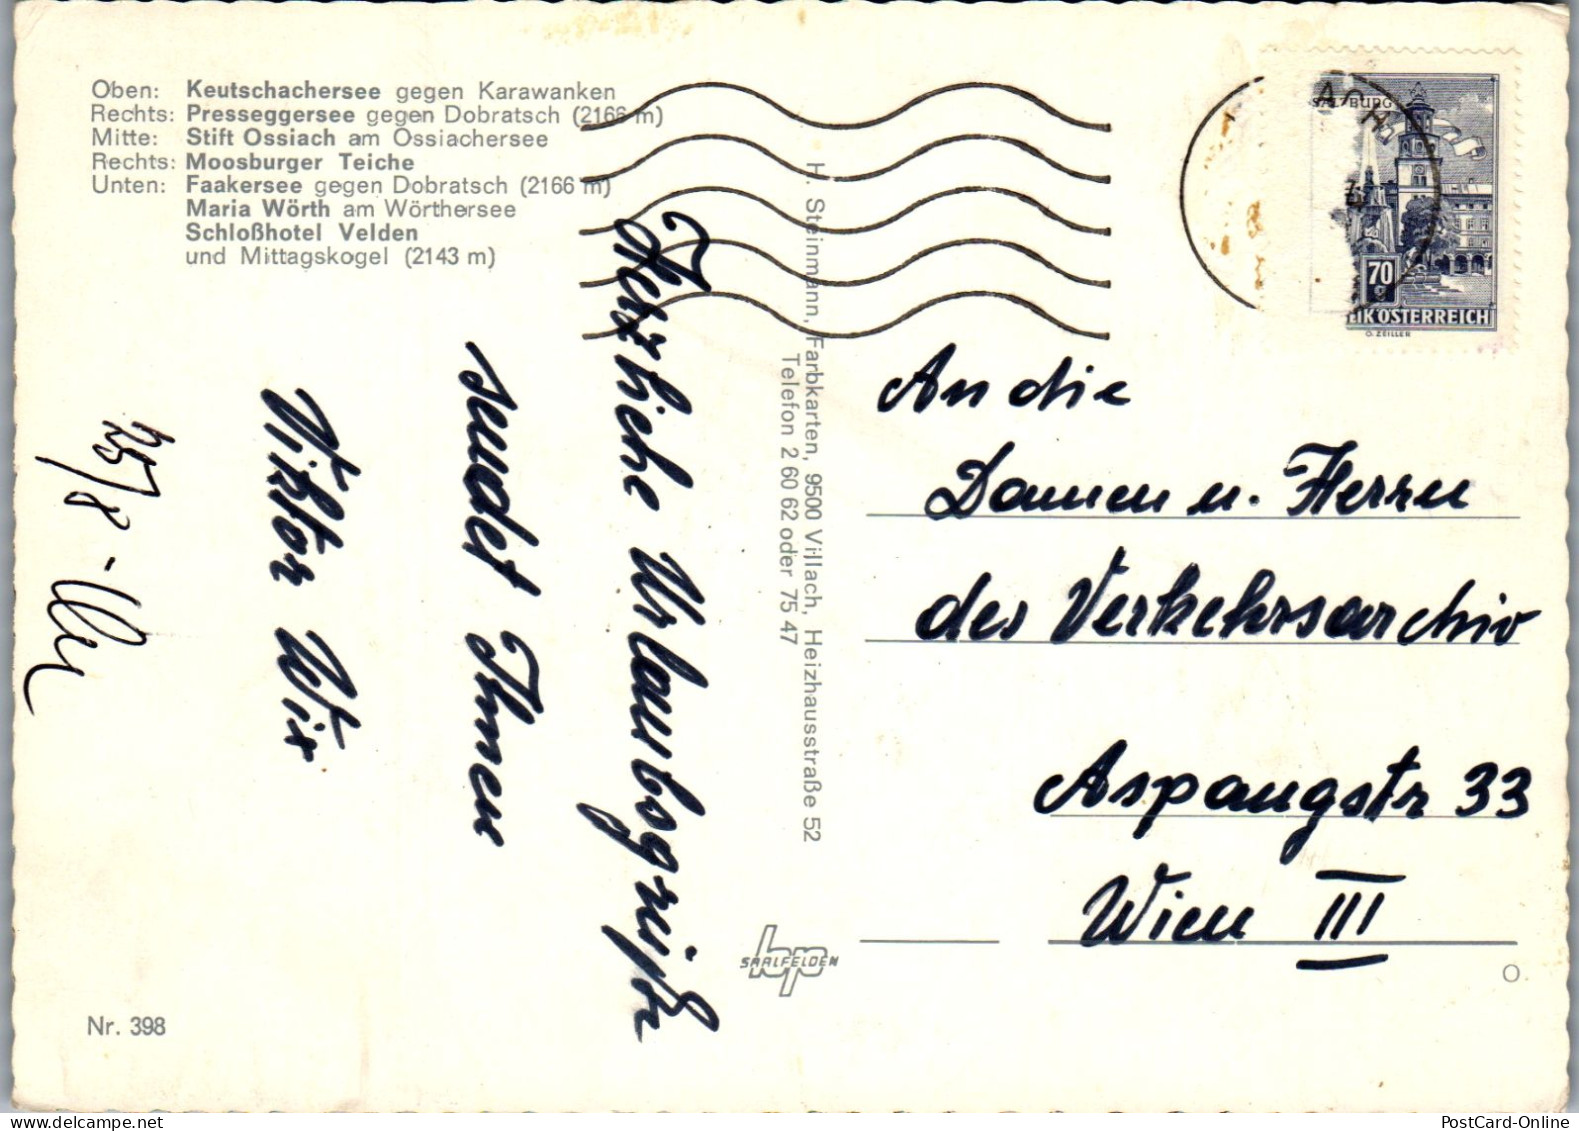 Oben: Keutschachersee gegen Karawanken
Rechts: Presseggersee gegen Dobratsch (2166 m)
Mitte: Stift Ossiach am Ossiachersee
Rechts: Moosburger Teiche
Unten: Faakersee gegen Dobratsch (2166 m)
Maria Wörth am Wörthersee
Schloßhotel Velden
und Mittagskogel (2143 m)
Herzliche Urlaubsgrüße
sendet Ihnen
Viktor Wix
Nr. 398
H. Steinmann, Farbkarten, 9500 Villach, Heizhausstraße 52
Telefon 2 60 62 oder 75 47
SAALFELDEN
SALZBURG
70
g
EIK ÖSTERREICH
O. ZEILLER
An die
Damen u. Herrn
des Verkehrsarchiv
Aspangstr 33
Wien III
O
PostCard-Online